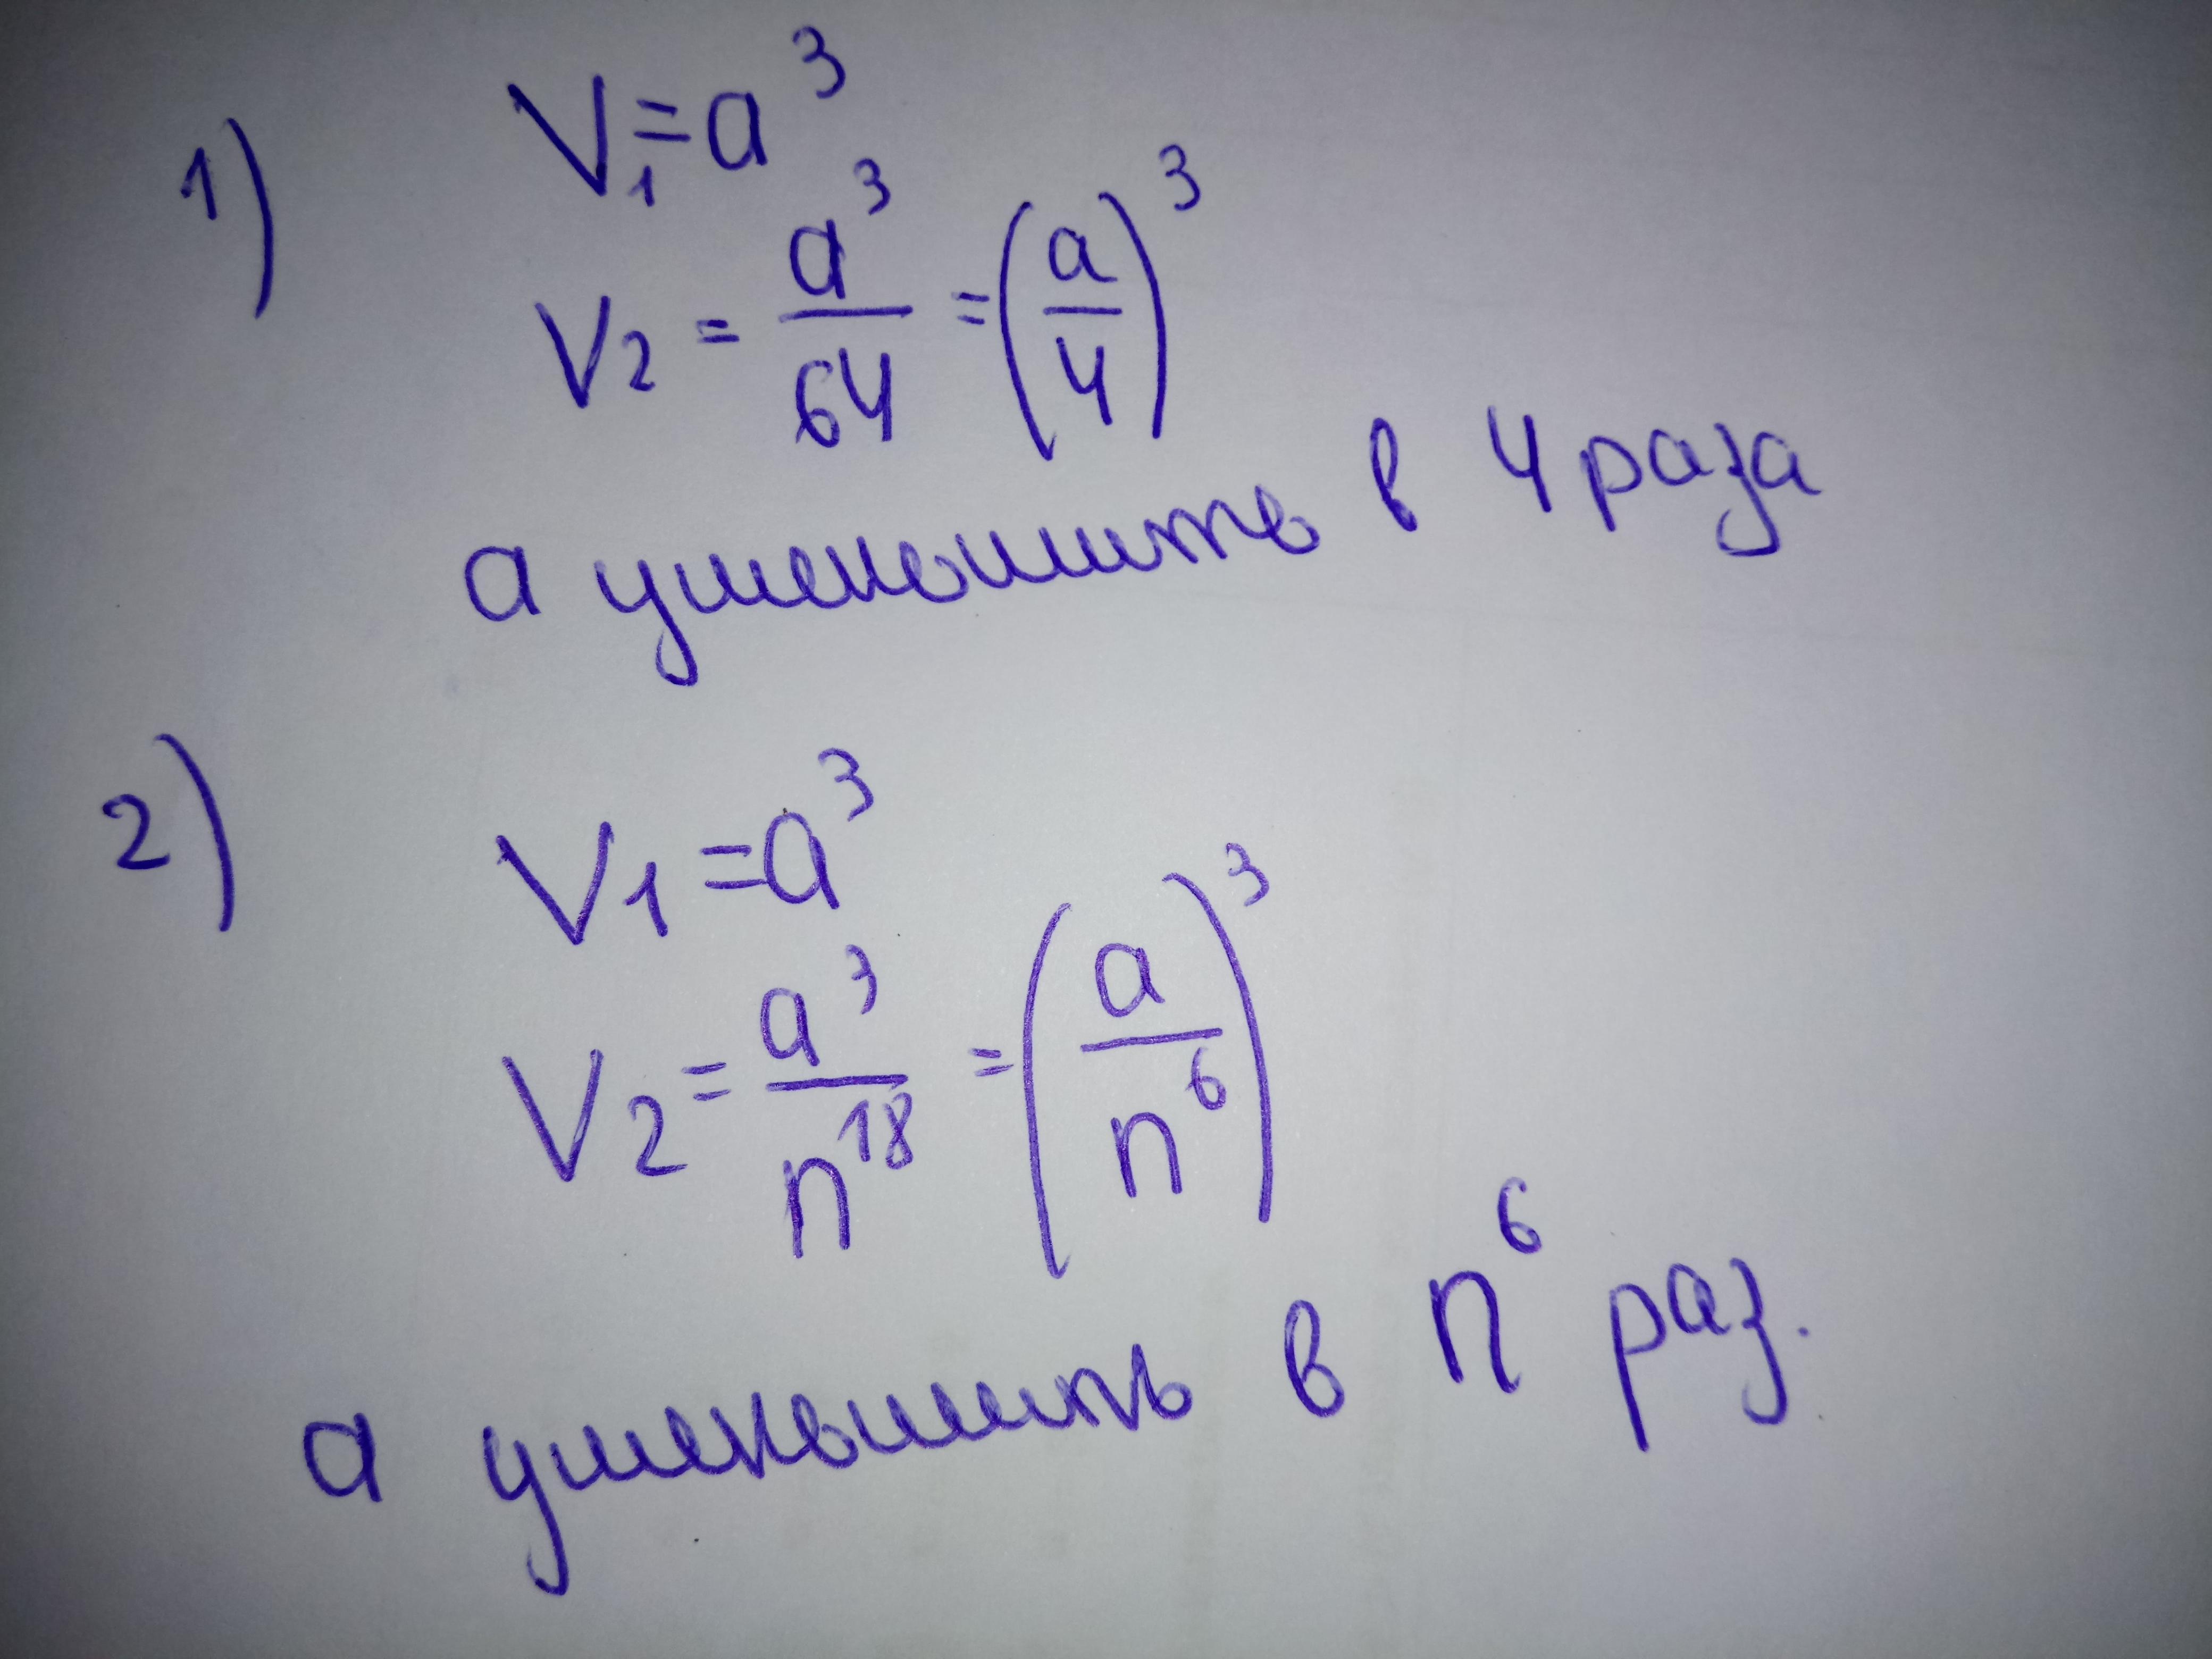 1) V₁=a³
V₂ = a³/64 = (a/4)³
а уменьшить в 4 раза
2) V₁ = a³
V₂ = a³/n¹⁸ = (a/n⁶)³
а уменьшить в n⁶ раз.